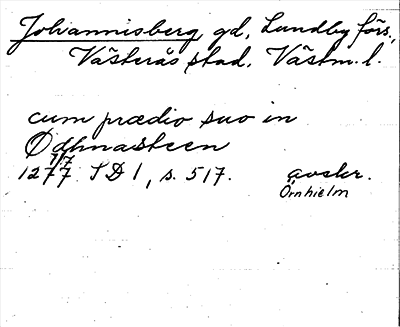 Johannisberg gd, Lundby förs.,
Västerås stad, Västm. l.
cum prædio suo in
Ødhnasteen
7/7
1277 SD 1, s. 517. avskr.
Örnhielm